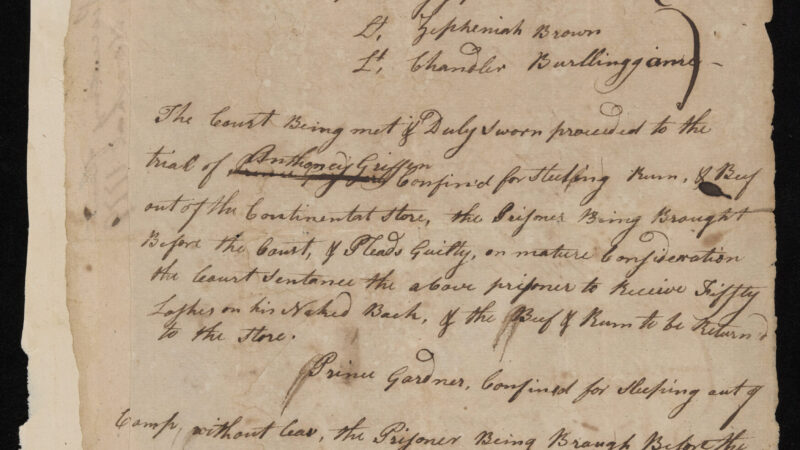 Lt. Zepheniah Brown
Lt. Chandler Burllinggame
The Court Being met & Duly sworn proceeded to the
trial of Anthoney Griffen Confin'd for Steeling Rum, & Beef
out of the Continental Store, the Prisoner Being Brought
Before the Court, & Pleads Guilty, on mature Consideration
the Court Sentance the above prisoner to Receive Fiffty
Lashes on his Naked Back, & the Beef & Rum to be Return'd
to the Store.
Prince Gardner, Confined for Sleeping out of
Camp, without leav, the Prisoner Being Brough Before the